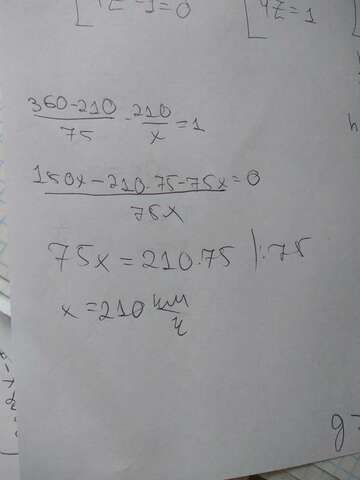 YZ-1=0
YZ=1
360-210/75 - 210/x = 1
150x-210·75-75x/75x = 0
75x = 210·75 |:75
x = 210 км/ч